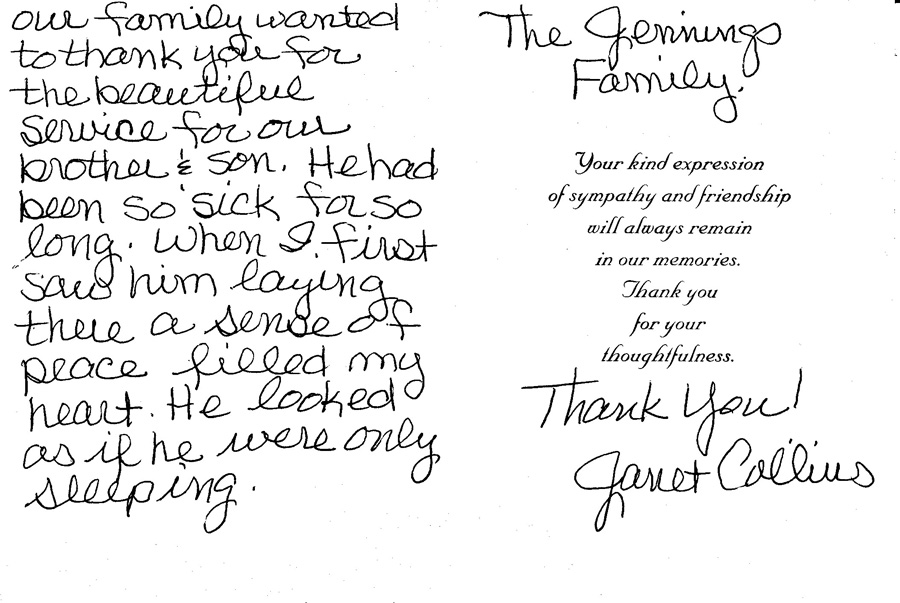 our family wanted
to thank you for
the beautiful
service for our
brother & son. He had
been so sick for so
long. When I first
saw him laying
there a sense of
peace filled my
heart. He looked
as if he were only
sleeping.
The Jennings
Family.
Your kind expression
of sympathy and friendship
will always remain
in our memories.
Thank you
for your
thoughtfulness.
Thank You!
Janet Collins